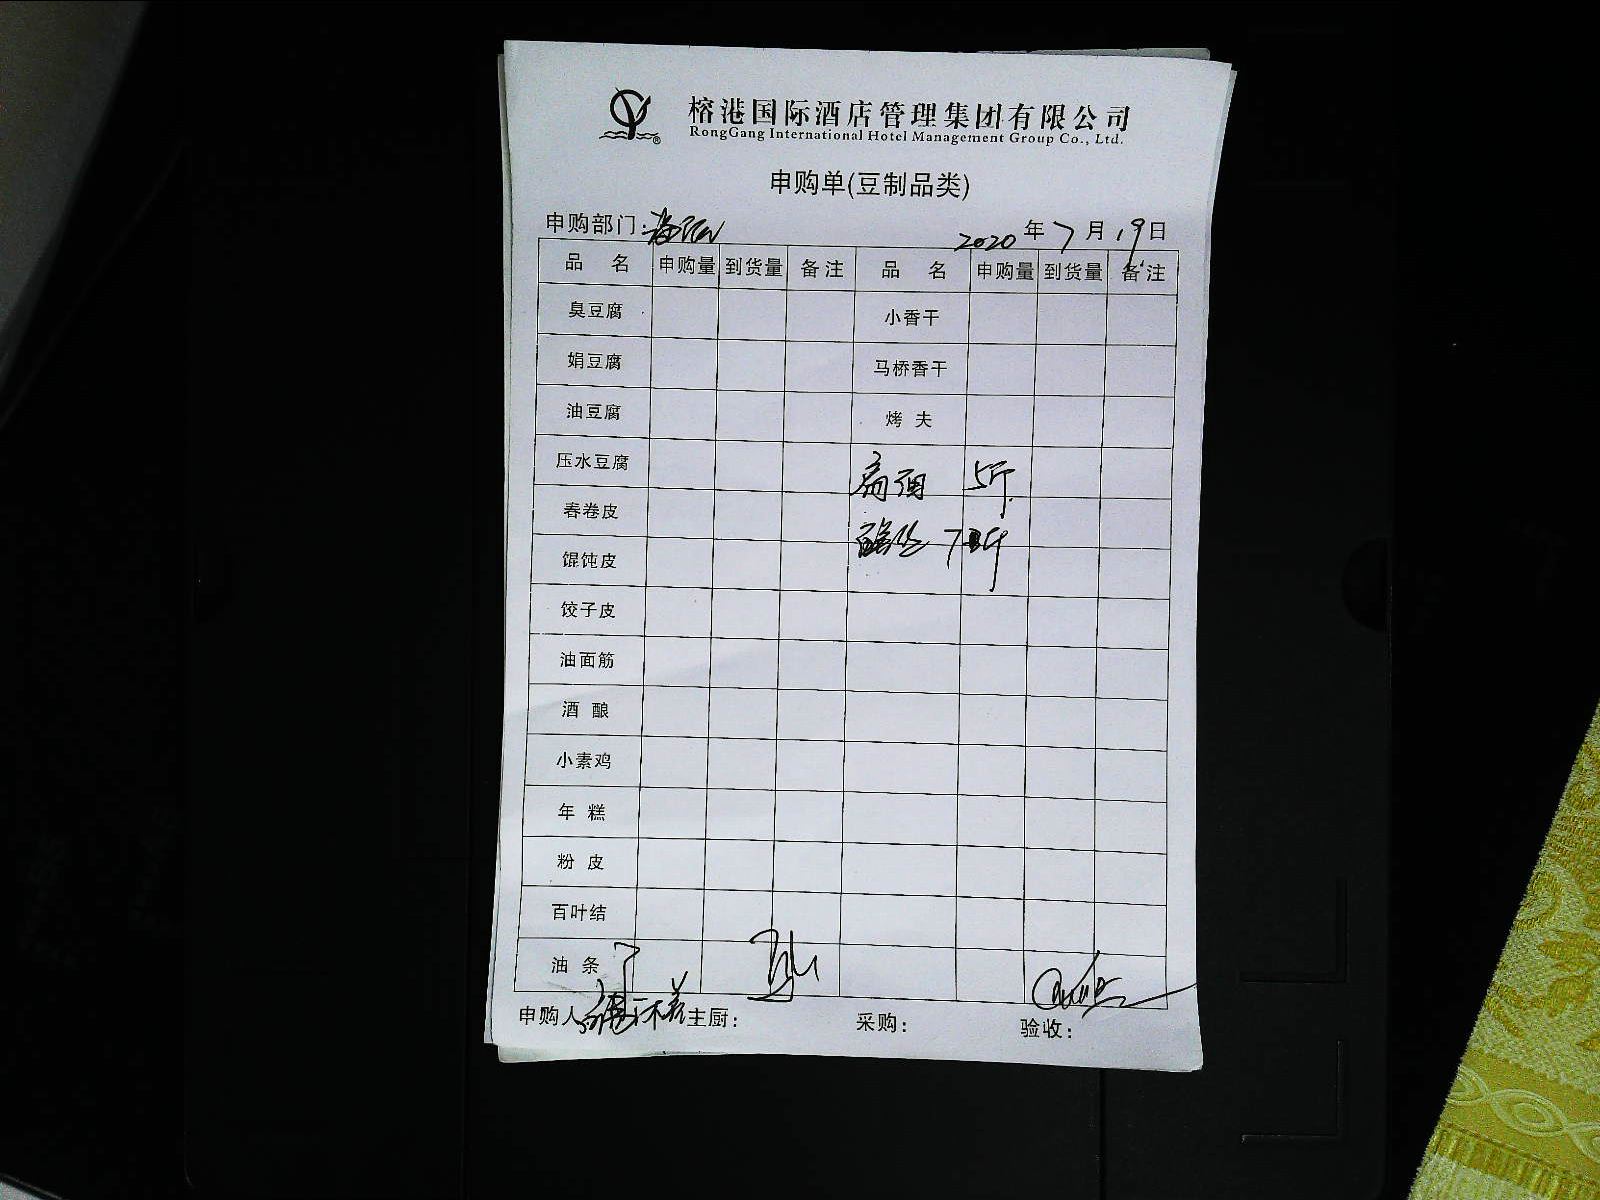 榕港国际酒店管理集团有限公司
RongGang International Hotel Management Group Co., Ltd.
申购单(豆制品类)
申购部门: 2020 年 7 月 19 日
品 名 申购量 到货量 备注 品 名 申购量 到货量 备注
臭豆腐 小香干
娟豆腐 马桥香干
油豆腐 烤 夫
压水豆腐 5斤
春卷皮
馄饨皮
饺子皮
油面筋
酒 酿
小素鸡
年 糕
粉 皮
百叶结
油 条
申购人 主厨: 采购: 验收: